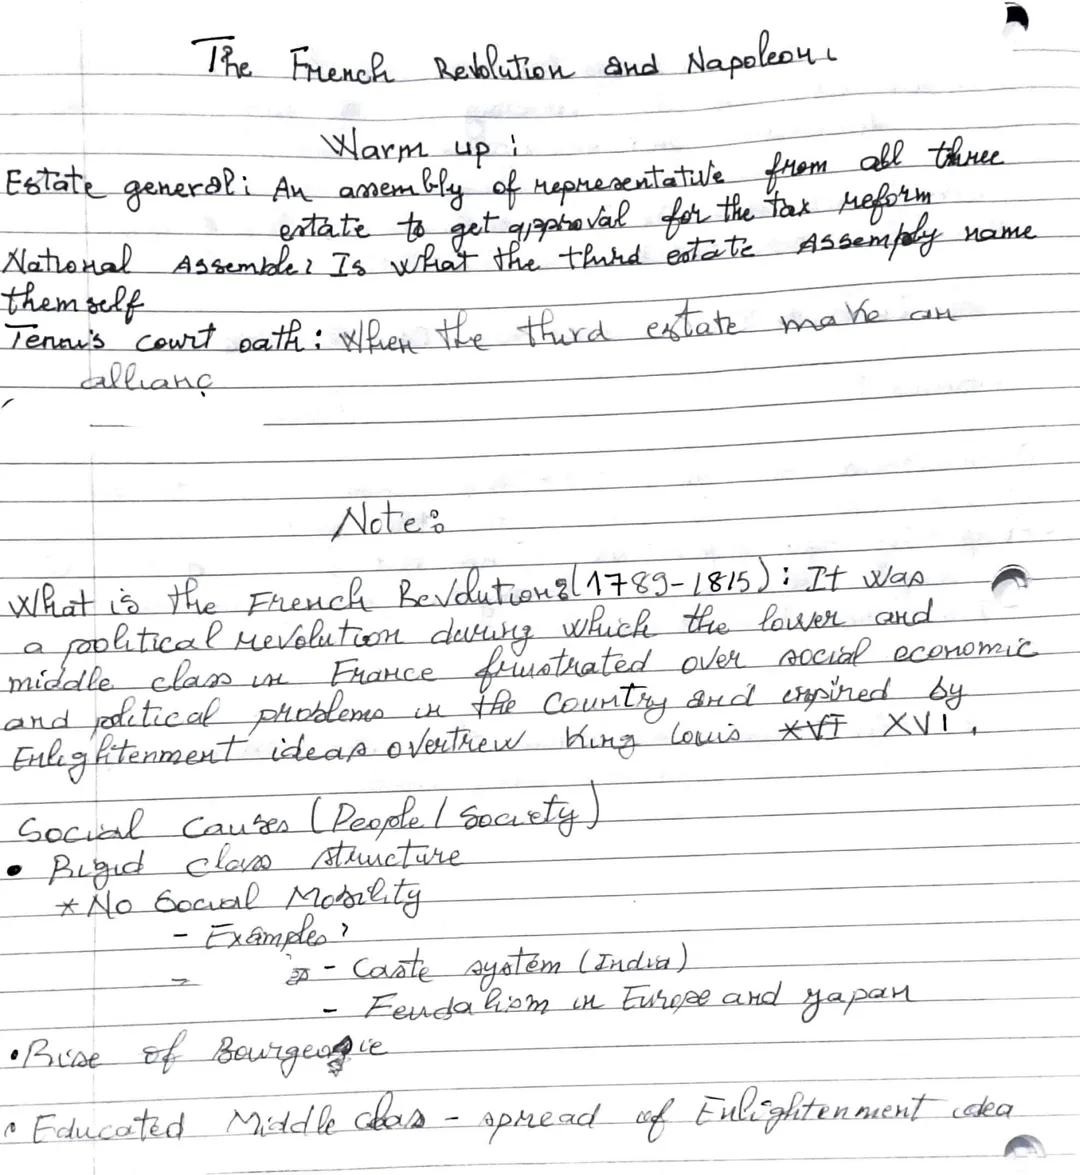 The French Revolution and Napoleon:
Warm up:
Estate general: An assembly of representative from all three
estate to get approval for the tax reform
National Assemble: Is what the third estate Assemply name
themself
Tennis court oath: When the third estate make an
allianç
Note:
What is the French Revolution (1789-1815): It was
a political revolution during which the lower and
middle class in France frustrated over social economic
and political problems in the Country and enpired by
Enlightenment ideas overtrew King Louis XVI XVI.
Social Causes (People / Society)
• Rigid class structure
* No Social Mobility
- Examples:
- Caste system (India)
- Feudalism in Europe and yapan
• Rise of Bourgeosie
• Educated Middle Class - spread of Enlightenment idea